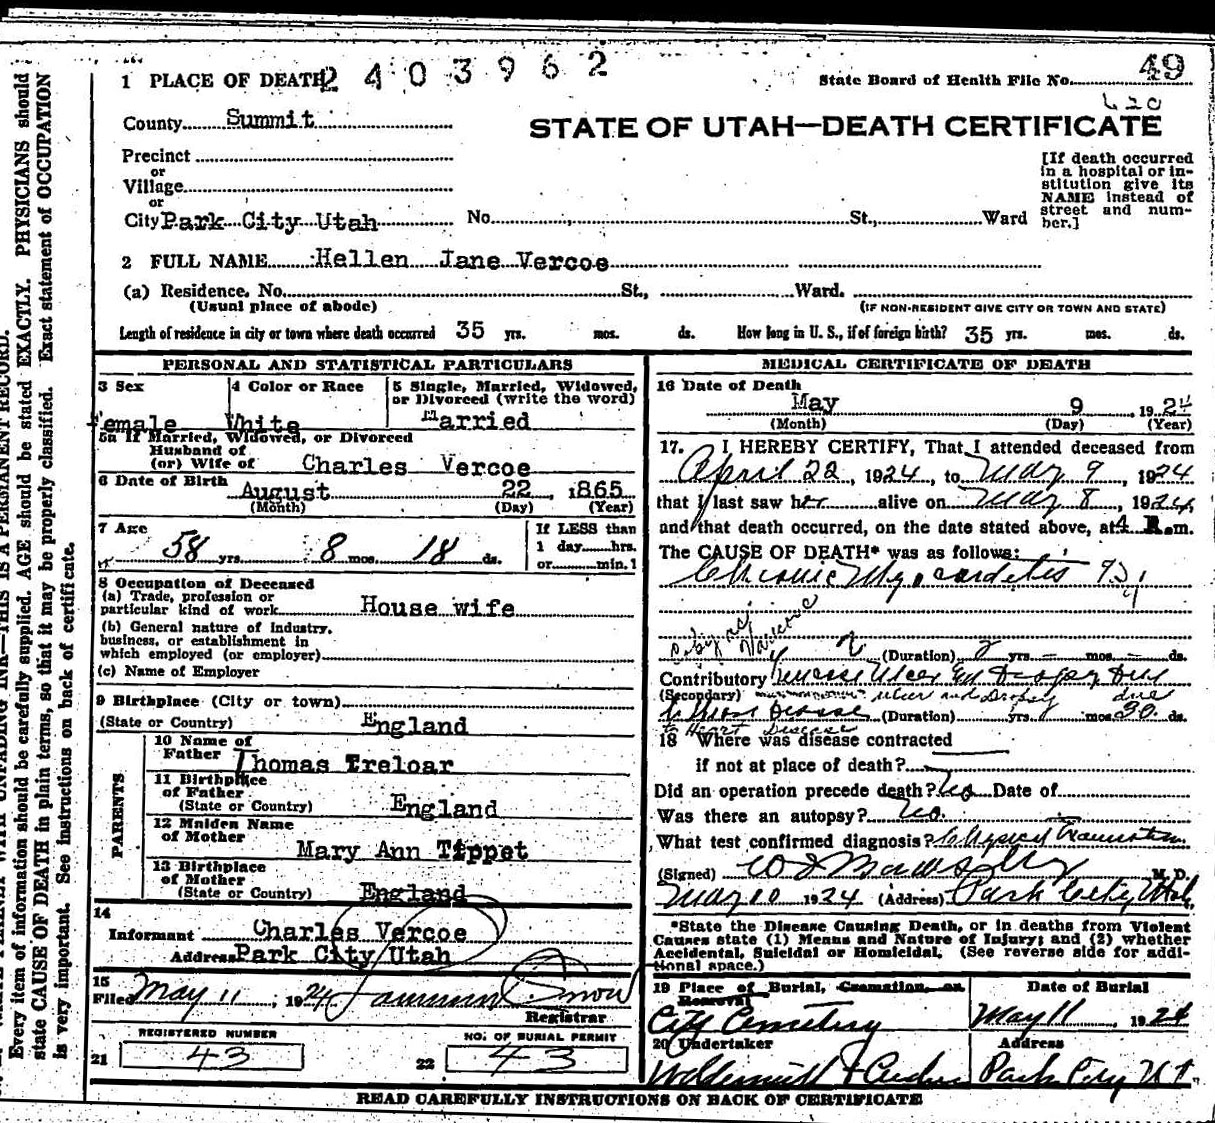 1 PLACE OF DEATH 2403962
State Board of Health File No. 49
620
County Summit
STATE OF UTAH—DEATH CERTIFICATE
Precinct
or
Village
or
City Park City Utah No. St., Ward
[If death occurred
in a hospital or in-
stitution give its
NAME instead of
street and num-
ber.]
2 FULL NAME Hellen Jane Vercoe
(a) Residence. No. St., Ward.
(Usual place of abode)
(IF NON-RESIDENT GIVE CITY OR TOWN AND STATE)
Length of residence in city or town where death occurred 35 yrs. mos. ds. How long in U. S., if of foreign birth? 35 yrs. mos. ds.
PERSONAL AND STATISTICAL PARTICULARS
3 Sex
Female
4 Color or Race
White
5 Single, Married, Widowed,
or Divorced (write the word)
Married
5a If Married, Widowed, or Divorced
Husband of
(or) Wife of Charles Vercoe
6 Date of Birth
August 22, 1865
(Month) (Day) (Year)
7 Age
58 yrs. 8 mos. 18 ds.
If LESS than
1 day......hrs.
or......min.
8 Occupation of Deceased
(a) Trade, profession or
particular kind of work House wife
(b) General nature of industry,
business, or establishment in
which employed (or employer)
(c) Name of Employer
9 Birthplace (City or town)
(State or Country) England
PARENTS
10 Name of
Father Thomas Treloar
11 Birthplace
of Father
(State or Country) England
12 Maiden Name
of Mother Mary Ann Tippet
13 Birthplace
of Mother
(State or Country) England
14
Informant Charles Vercoe
Address Park City Utah
15
Filed May 11, 1924 Snow
Registrar
REGISTERED NUMBER
21 43
NO. OF BURIAL PERMIT
22 43
MEDICAL CERTIFICATE OF DEATH
16 Date of Death
May 9, 1924
(Month) (Day) (Year)
17. I HEREBY CERTIFY, That I attended deceased from
April 22, 1924, to May 9, 1924
that I last saw her alive on May 8, 1924,
and that death occurred, on the date stated above, at 4 m.
The CAUSE OF DEATH* was as follows:
Chronic Myocarditis
Varicose
(Duration) 2 yrs. – mos. – ds.
Contributory Ulcer Dropsy
(Secondary) ulcer and Dropsy due
(Duration) yrs. mos. 30 ds.
to Heart Disease
18 Where was disease contracted
if not at place of death?
Did an operation precede death? No Date of
Was there an autopsy? No.
What test confirmed diagnosis? Physical Examination
(Signed) M.D.
May 10 1924 (Address) Park City, Utah,
*State the Disease Causing Death, or in deaths from Violent
Causes state (1) Means and Nature of Injury; and (2) whether
Accidental, Suicidal or Homicidal. (See reverse side for addi-
tional space.)
19 Place of Burial, Cremation, or
Removal
City Cemetery
Date of Burial
May 11 1924
20 Undertaker
Address
Park City Ut.
READ CAREFULLY INSTRUCTIONS ON BACK OF CERTIFICATE
UNFADING INK—THIS IS A PERMANENT RECORD.
Every item of information should be carefully supplied. AGE should be stated EXACTLY. PHYSICIANS should
state CAUSE OF DEATH in plain terms, so that it may be properly classified. Exact statement of OCCUPATION
is very important. See instructions on back of certificate.